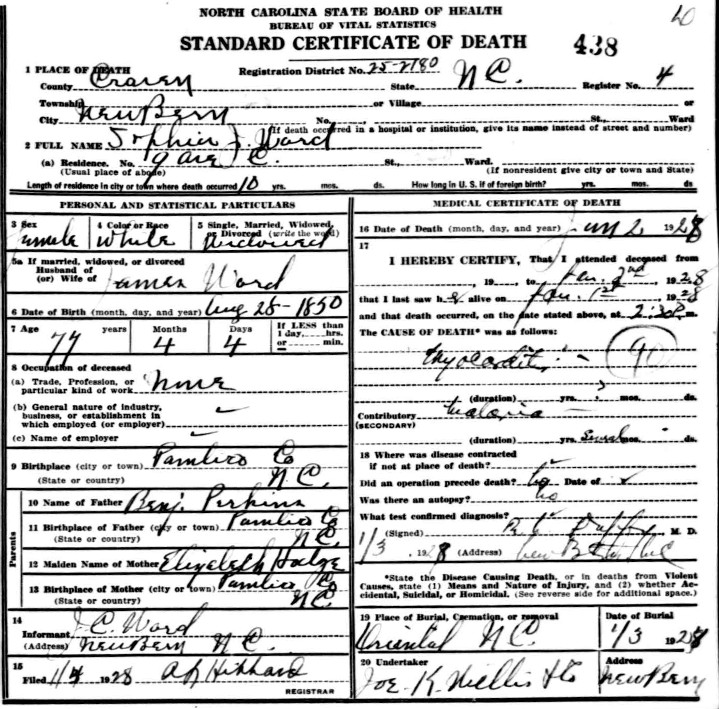 40
NORTH CAROLINA STATE BOARD OF HEALTH
BUREAU OF VITAL STATISTICS
STANDARD CERTIFICATE OF DEATH 438
1 PLACE OF DEATH Registration District No. 25-2180
County Craven State N C. Register No. 4
Township or Village or
City New Bern No. St., Ward
(If death occurred in a hospital or institution, give its name instead of street and number)
2 FULL NAME Sophia J. Ward
(a) Residence. No. St., Ward.
(Usual place of abode) (If nonresident give city or town and State)
Length of residence in city or town where death occurred 10 yrs. mos. ds. How long in U. S. if of foreign birth? yrs. mos. ds.
PERSONAL AND STATISTICAL PARTICULARS
3 Sex 4 Color or Race 5 Single, Married, Widowed, or Divorced (write the word)
Female White Widowed
5a If married, widowed, or divorced
Husband of
(or) Wife of James Ward
6 Date of Birth (month, day, and year) Aug 28-1850
7 Age years Months Days If LESS than 1 day,....hrs. or ....... min.
77 4 4
8 Occupation of deceased
(a) Trade, Profession, or particular kind of work None
(b) General nature of industry, business, or establishment in which employed (or employer)
(c) Name of employer
9 Birthplace (city or town) Pamlico Co
(State or country) N C.
Parents
10 Name of Father Benj. Perkins
11 Birthplace of Father (city or town) Pamlico Co
(State or country) N C.
12 Maiden Name of Mother Elizabeth
13 Birthplace of Mother (city or town) Pamlico Co
(State or country) N C.
14
Informant J C. Ward
(Address) New Bern N C.
15
Filed 1/4 1928
REGISTRAR
MEDICAL CERTIFICATE OF DEATH
16 Date of Death (month, day, and year) Jan 2 1928
17
I HEREBY CERTIFY, That I attended deceased from
, 19 , to Jan. 2nd 1928
that I last saw her alive on Jan. 1st 1928
and that death occurred, on the date stated above, at 2:30 m.
The CAUSE OF DEATH* was as follows:
Myocarditis - 90
(duration) yrs. mos. ds.
Contributory Malaria
(SECONDARY)
(duration) yrs. Several mos. ds.
18 Where was disease contracted
if not at place of death?
Did an operation precede death? No Date of
Was there an autopsy? No
What test confirmed diagnosis?
(Signed) , M. D.
1/3 , 1928 (Address) New Bern N C
*State the Disease Causing Death, or in deaths from Violent
Causes, state (1) Means and Nature of Injury, and (2) whether Ac-
cidental, Suicidal, or Homicidal. (See reverse side for additional space.)
19 Place of Burial, Cremation, or removal Date of Burial
Oriental N C. 1/3 1928
20 Undertaker Address
Joe K. Willis & Co New Bern